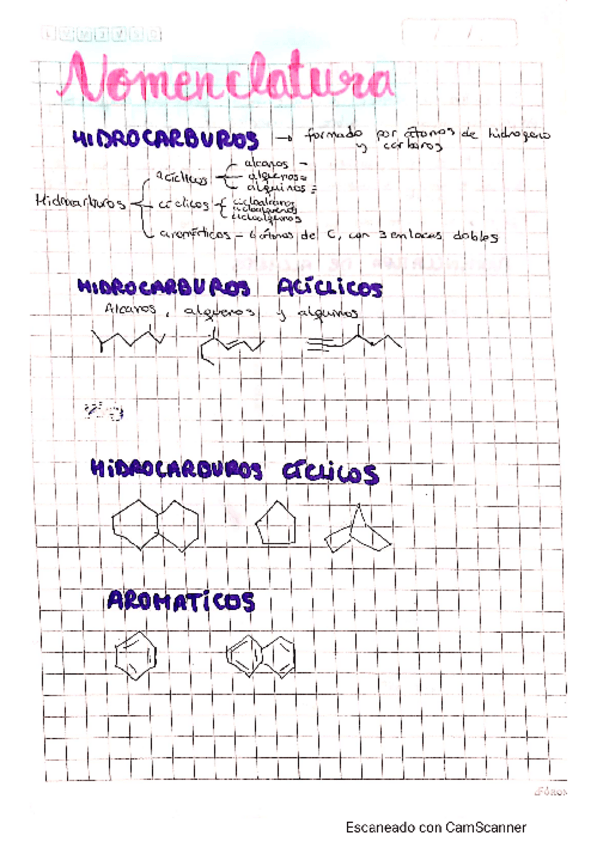 Nomenclatura
HIDROCARBUROS → formado por átonos de hidrogeno
y carbonos
acíclicos alcanos -
alquenos =
alquinos ≡
Hidrocarburos cíclicos cicloalcanos
cicloalquenos
cicloalquinos
aromáticos - 6 átonos de C, con 3 enlaces dobles
HIDROCARBUROS ACÍCLICOS
Alcanos, alquenos y alquinos
HIDROCARBUROS CÍCLICOS
AROMATICOS
Escaneado con CamScanner